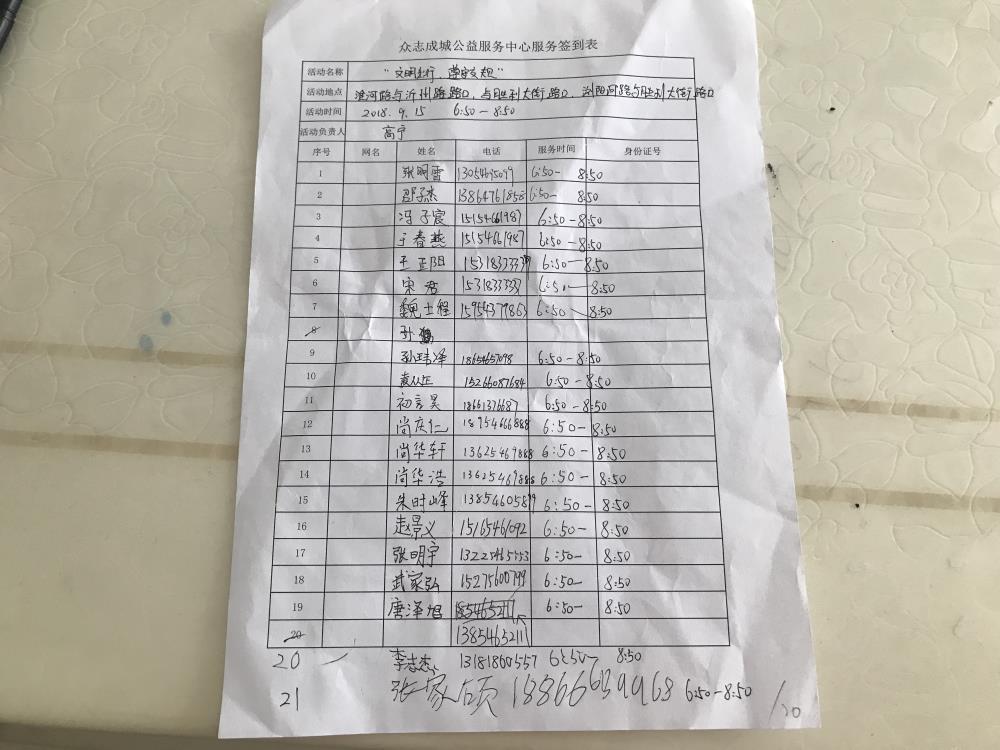 众志成城公益服务中心服务签到表
活动名称 "文明出行、遵守交规"
活动地点 淮河路与沂州路路口,与胜利大街路口 浏阳河路与胜利大街路口
活动时间 2018.9.15 6:50-8:50
活动负责人 高宁
序号 网名 姓名 电话 服务时间 身份证号
1 张明雪 6:50- 8:50
2 邵子杰 13864761858 6:50- 8:50
3 冯子宸 15154661987 6:50-8:50
4 于春燕 15154661987 6:50-8:50
5 王正阳 6:50-8:50
6 宋君 8:50
7 魏士程 15954379863 6:50-8:50
8 孙
9 孙玮泽 18654657098 6:50-8:50
10 袁从正 15266087684 6:50-8:50
11 初言昊 18661376687 6:50-8:50
12 尚庆仁 18954666888 6:50-8:50
13 尚华轩 13625469888 6:50-8:50
14 尚华浩 13625469888 6:50-8:50
15 朱时峰 13854605899 6:50-8:50
16 赵景义 15165461092 6:50-8:50
17 张明宇 6:50-8:50
18 武家弘 15275600799 6:50-8:50
19 唐泽旭 6:50-8:50
20 13854652111
20 李志杰 13181860557 6:50- 8:50
21 张家硕 18866639968 6:50-8:50 /20